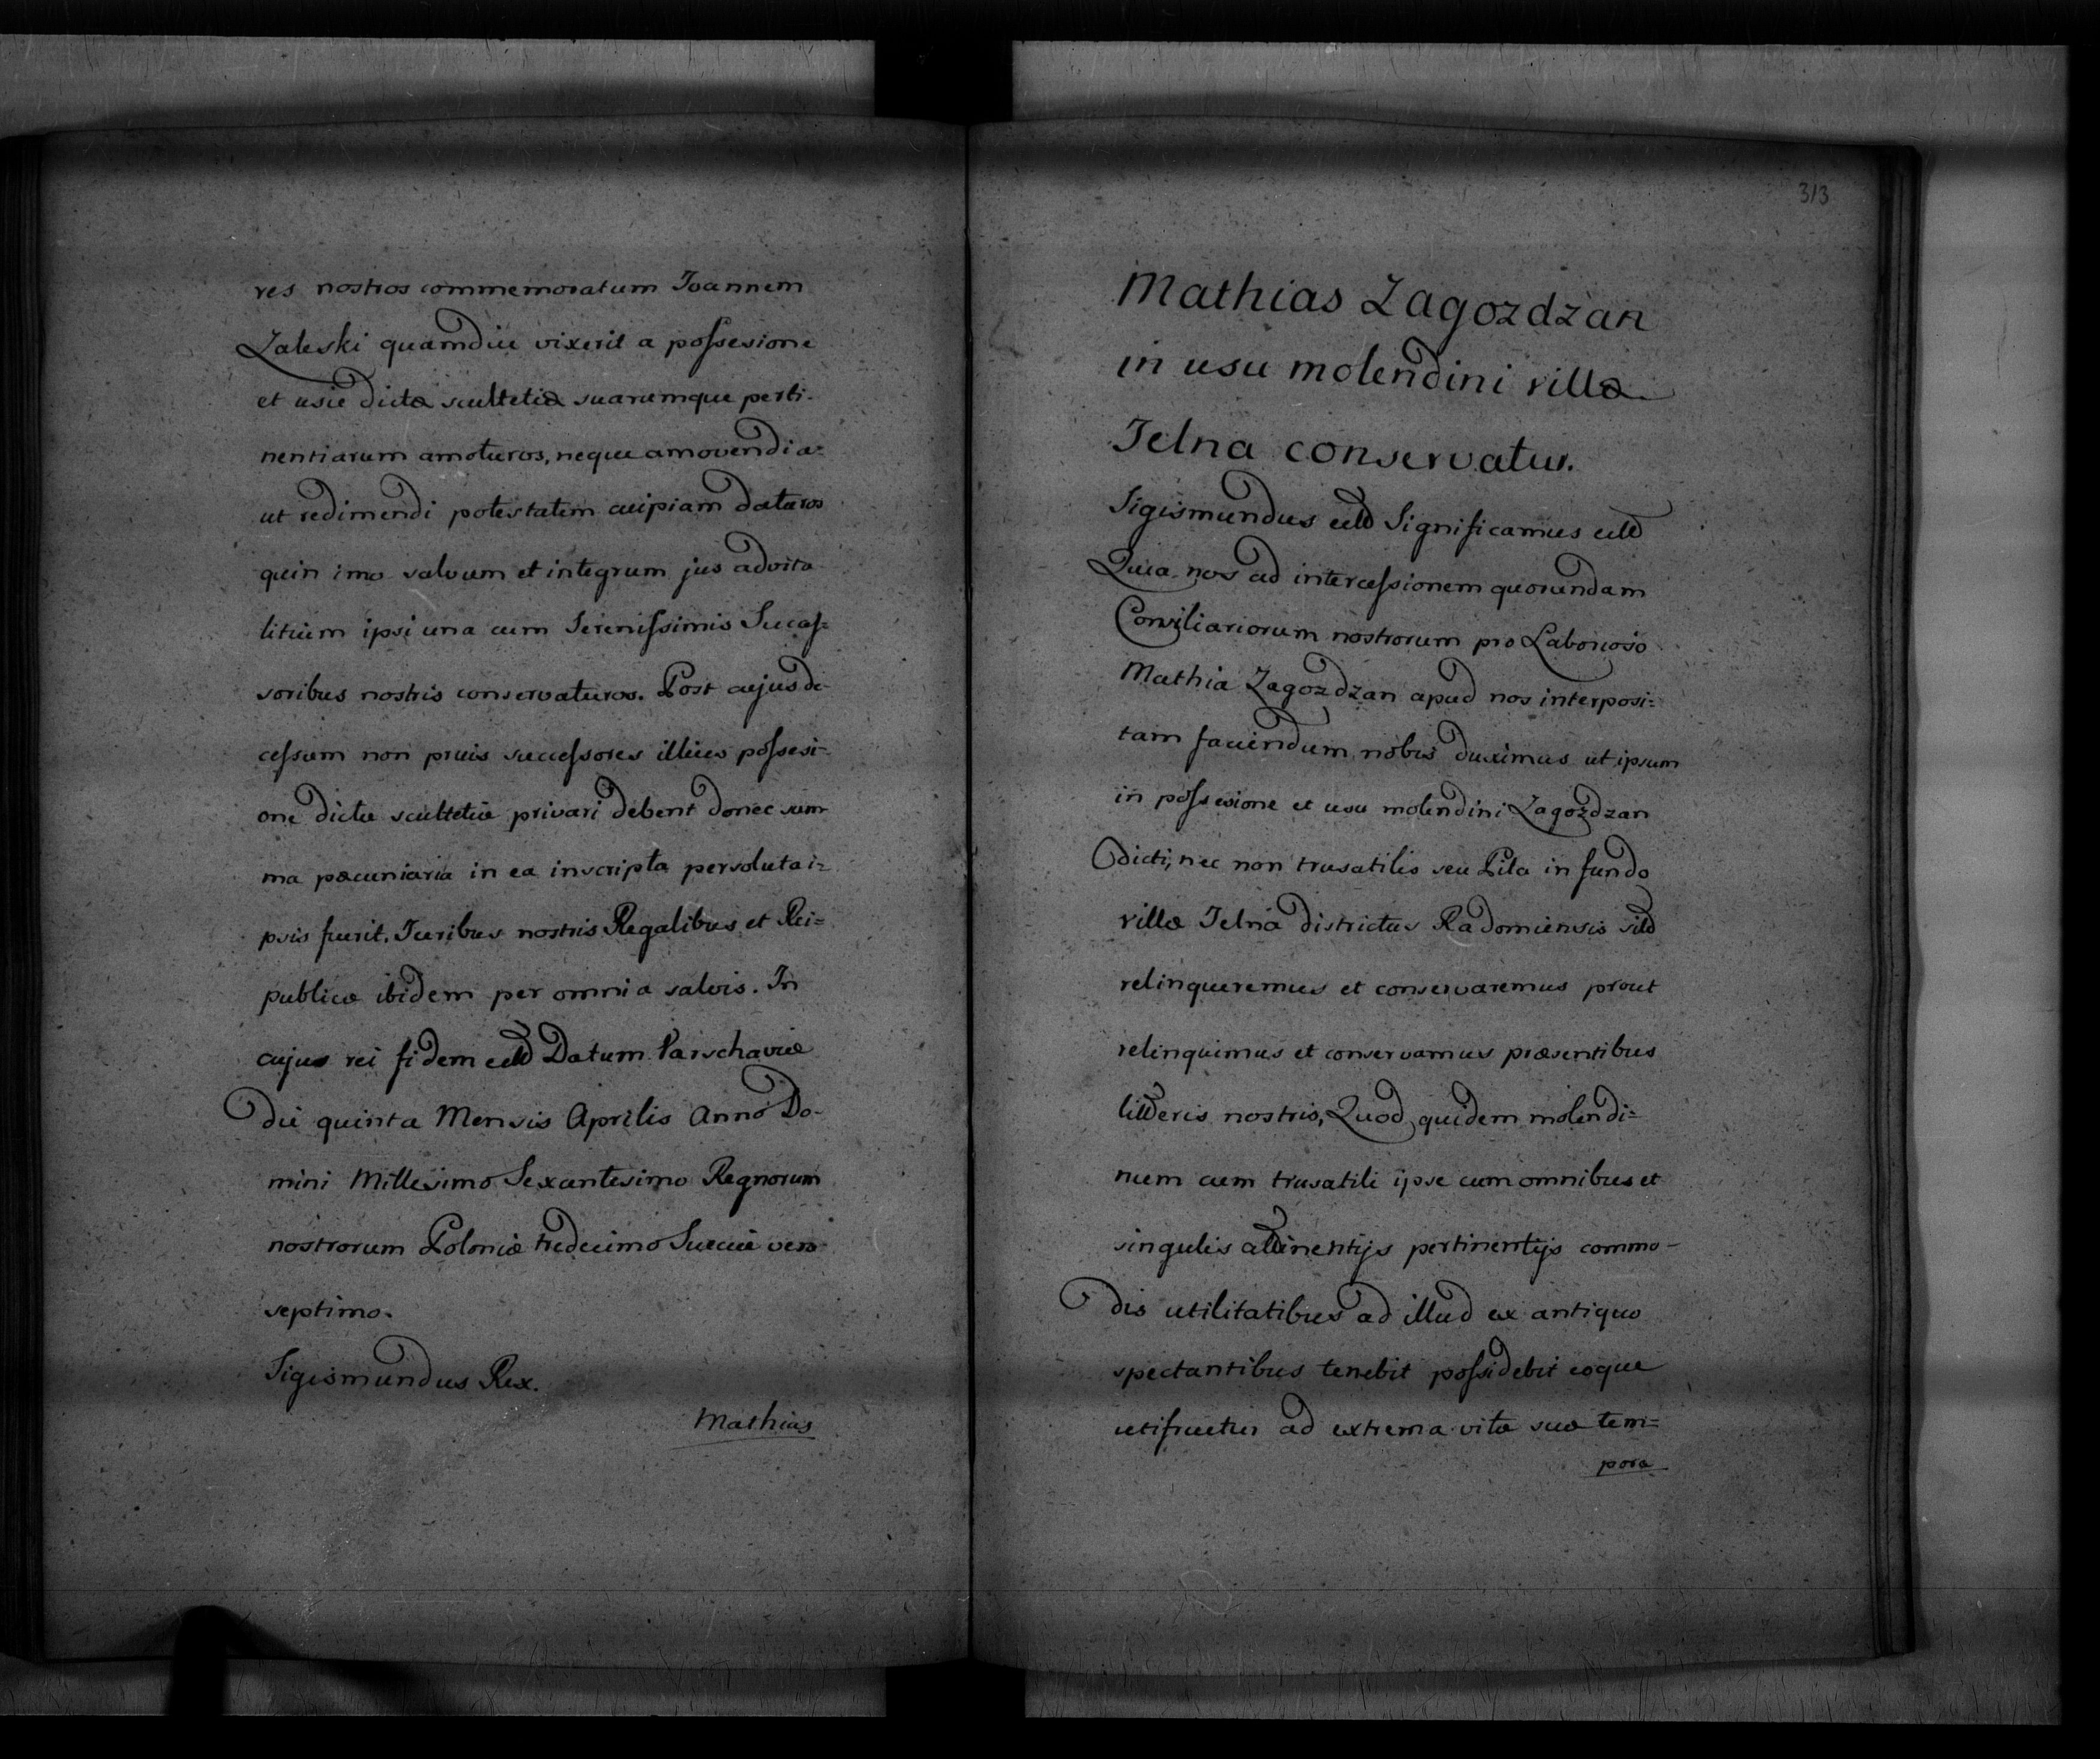 res nostros commemoratum Ioannem
Zaleski quamdiu vixerit a possesione
et usu dictæ scultetiæ suarumque perti-
nentiarum amoturos, neque amovendi a=
ut redimendi potestatem cuipiam daturos
quin imo salvum et integrum jus advita
litium ipsi una cum Serenissimis Succes=
soribus nostris conservaturos. Post cujus de-
cessum non prius successores illius possesi=
one dictæ scultetiæ privari debent donec sum
ma pæcuniaria in ea inscripta persoluta i=
psis fuerit. Iuribus nostris Regalibus et Rei=
publicæ ibidem per omnia salvis. In
cujus rei fidem ettt Datum Varschaviæ
die quinta Mensis Aprilis Anno Do-
mini Millesimo Sexcentesimo Regnorum
nostrorum Poloniæ tredecimo Sueciæ vero
septimo.
Sigismundus Rex.
Mathias
313
Mathias Zagozdzan
in usu molendini villæ
Jelna conservatur.
Sigismundus ettt Significamus ettt
Quia nos ad intercessionem quorundam
Consiliariorum nostrorum pro Laborioso
Mathia Zagozdzan apud nos interposi=
tam faciendum nobis duximus ut ipsum
in possesione et usu molendini Zagozdzan
dicti, nec non trusatilis seu Pila in fundo
villæ Jelna districtus Radomiensis sitt
relinqueremus et conservaremus prout
relinquimus et conservamus præsentibus
litteris nostris, Quod quidem molendi=
num cum trusatili ipse cum omnibus et
singulis attinentijs pertinentijs commo-
dis utilitatibus ad illud ex antiquo
spectantibus tenebit possidebit eoque
utifruetur ad extrema vitæ suæ tem=
pora